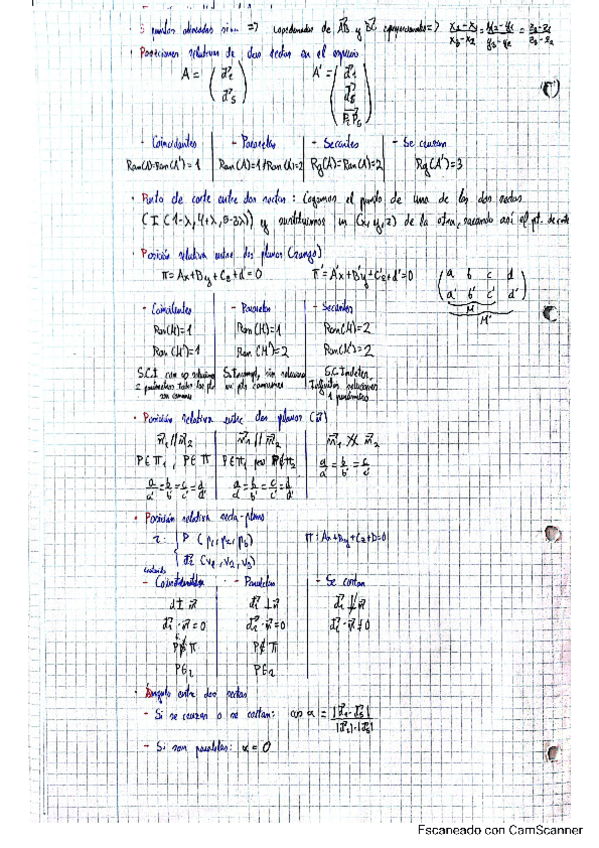 3 puntos alineados si => coordenadas de AB y BC proporcionales => x2-x1/x3-x2 = y2-y1/y3-y2 = z2-z1/z3-z2
· Posiciones relativas de dos rectas en el espacio
A = (dr ds) A' = (dr ds PrPs)
- Coincidentes - Paralelas - Secantes - Se cruzan
Ran(A)=Ran(A')=1 Ran(A)=1 Ran(A')=2 Rg(A)=Ran(A')=2 Rg(A')=3
· Punto de corte entre dos rectas: Cogemos el punto de una de las dos rectas
(I (1-λ, 4+λ, 5-3λ)) y sustituimos en (x,y,z) de la otra, sacando así el pt. de corte
· Posición relativa entre dos planos (rango)
π=Ax+By+Cz+d=0 π'=A'x+B'y+C'z+d'=0 (a b c d
a' b' c' d')
M
M'
- Coincidentes - Paralelos - Secantes
Ran(M)=1 Ran(M)=1 Ran(M)=2
Ran(M')=1 Ran(M')=2 Ran(M')=2
S.C.I con ∞ soluciones S. Incomp, sin soluciones S.C. Indeter.
2 parámetros todos los pts no pts comunes Infinitas soluciones
son comunes 1 parámetro
· Posición relativa entre dos planos (n)
n1 // n2 n1 // n2
P∈π1, P∈π P∈π1 pero P∉π2 a/a' = b/b' = c/c'
a/a'=b/b'=c/c'=d/d' a/a'=b/b'=c/c'=d/d'
· Posición relativa recta-plano
r: { P (p1, p2, p3) π: Ax+By+Cz+D=0
dr (v1, v2, v3)
- Se cortan
- Paralelas
d ⊥ n dr ⊥ n
dr · n = 0 dr · n = 0 dr · n ≠ 0
P∉π
· Ángulo entre dos rectas
- Si se cruzan o se cortan: cos α = |dr·ds| / |dr|·|ds|
- Si son paralelas: α = 0
Escaneado con CamScanner